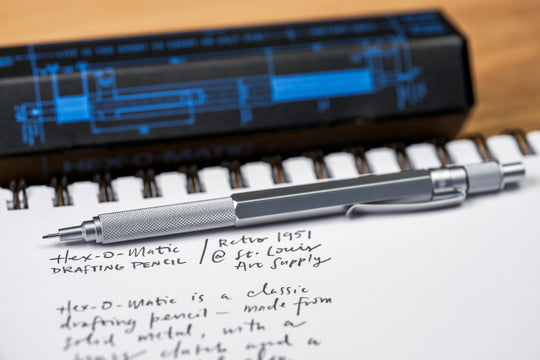 HEX-O-MATIC
Hex-O-Matic / Retro 1951
DRAFTING PENCIL @ St. Louis
Art Supply
Hex-O-Matic is a classic
drafting pencil — made from
solid metal, with a
brass clutch and a